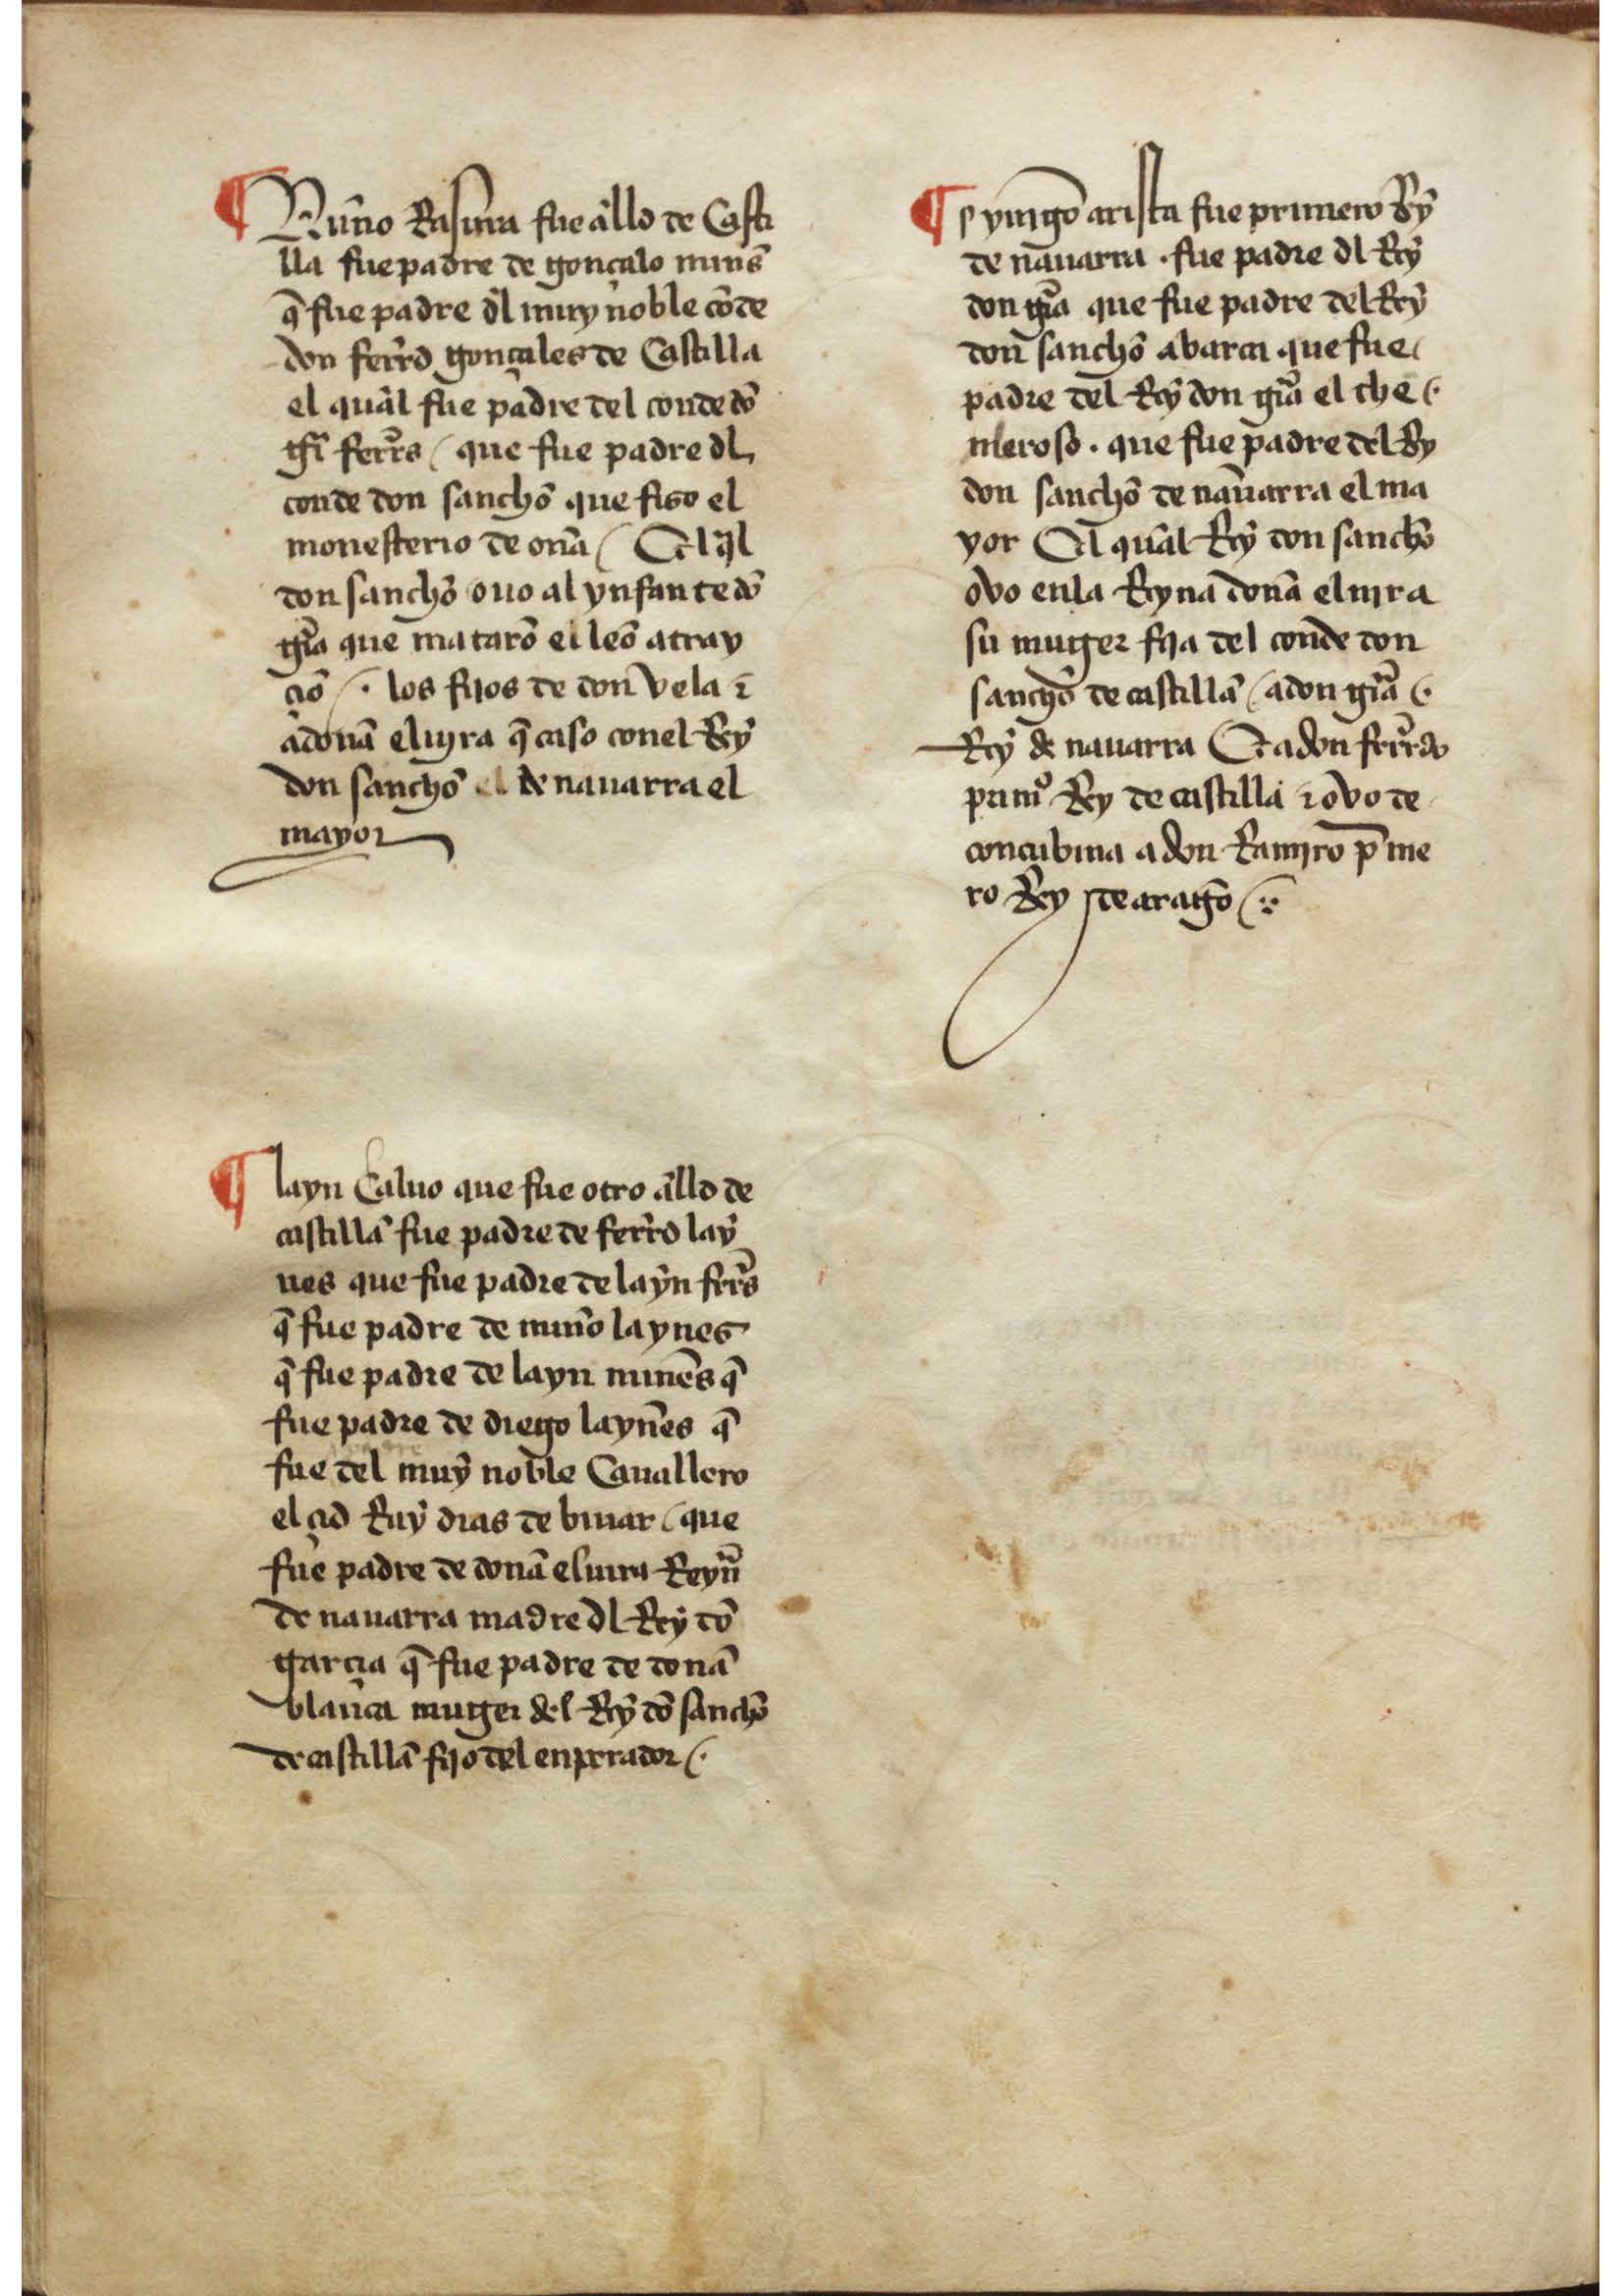 ¶ Nuño Rasuera fue allo de Casti
lla fue padre de gonçalo nuns̃
q̃ fue padre dl muy noble cõde
don ferrdo gonçales de Castilla
el qual fue padre del conde dõ
gr̃i ferrs / que fue padre dl
conde don sancho que fiso el
monesterio de oña / Et l q̃l
don sancho ouo al ynfante dõ
gr̃a que matarõ en leõ a tray
çiõ / . los fijos de don vela ⁊
a doña eluira q̃ caso con el Rey
don sancho el de nauarra el
mayor
¶ layn Caluo que fue otro allo de
castilla fue padre de ferrdo lay
nes que fue padre de layn frrs
q̃ fue padre de nuño laynes
q̃ fue padre de layn nunes q̃
fue padre de diego laynes q̃
fue del muy noble Cauallero
el çid Ruy dias de biuar / que
fue padre de doña eluira Reyña
de nauarra madre dl Rey dõ
garçia q̃ fue padre de doña
blanca muger del Rey dõ sancho
de castilla fijo del enperador / .
¶ yñigo arista fue primero Ry
de nauarra . fue padre dl Rey
don gr̃a que fue padre del Rey
don sancho abarca que fue
padre del Rey don gr̃a el the / .
nleroso . que fue padre del Ry
don sancho de nauarra el ma
yor El qual Rey don sancho
ovo en la Reyna doña eluira
su muger fija del conde don
sancho de castilla / a don gr̃a / .
Rey de nauarra Et a don ferrdo
primº Rey de castilla ⁊ ovo de
concubina a don Ramiro p̃me
ro Rey de aragõ / .